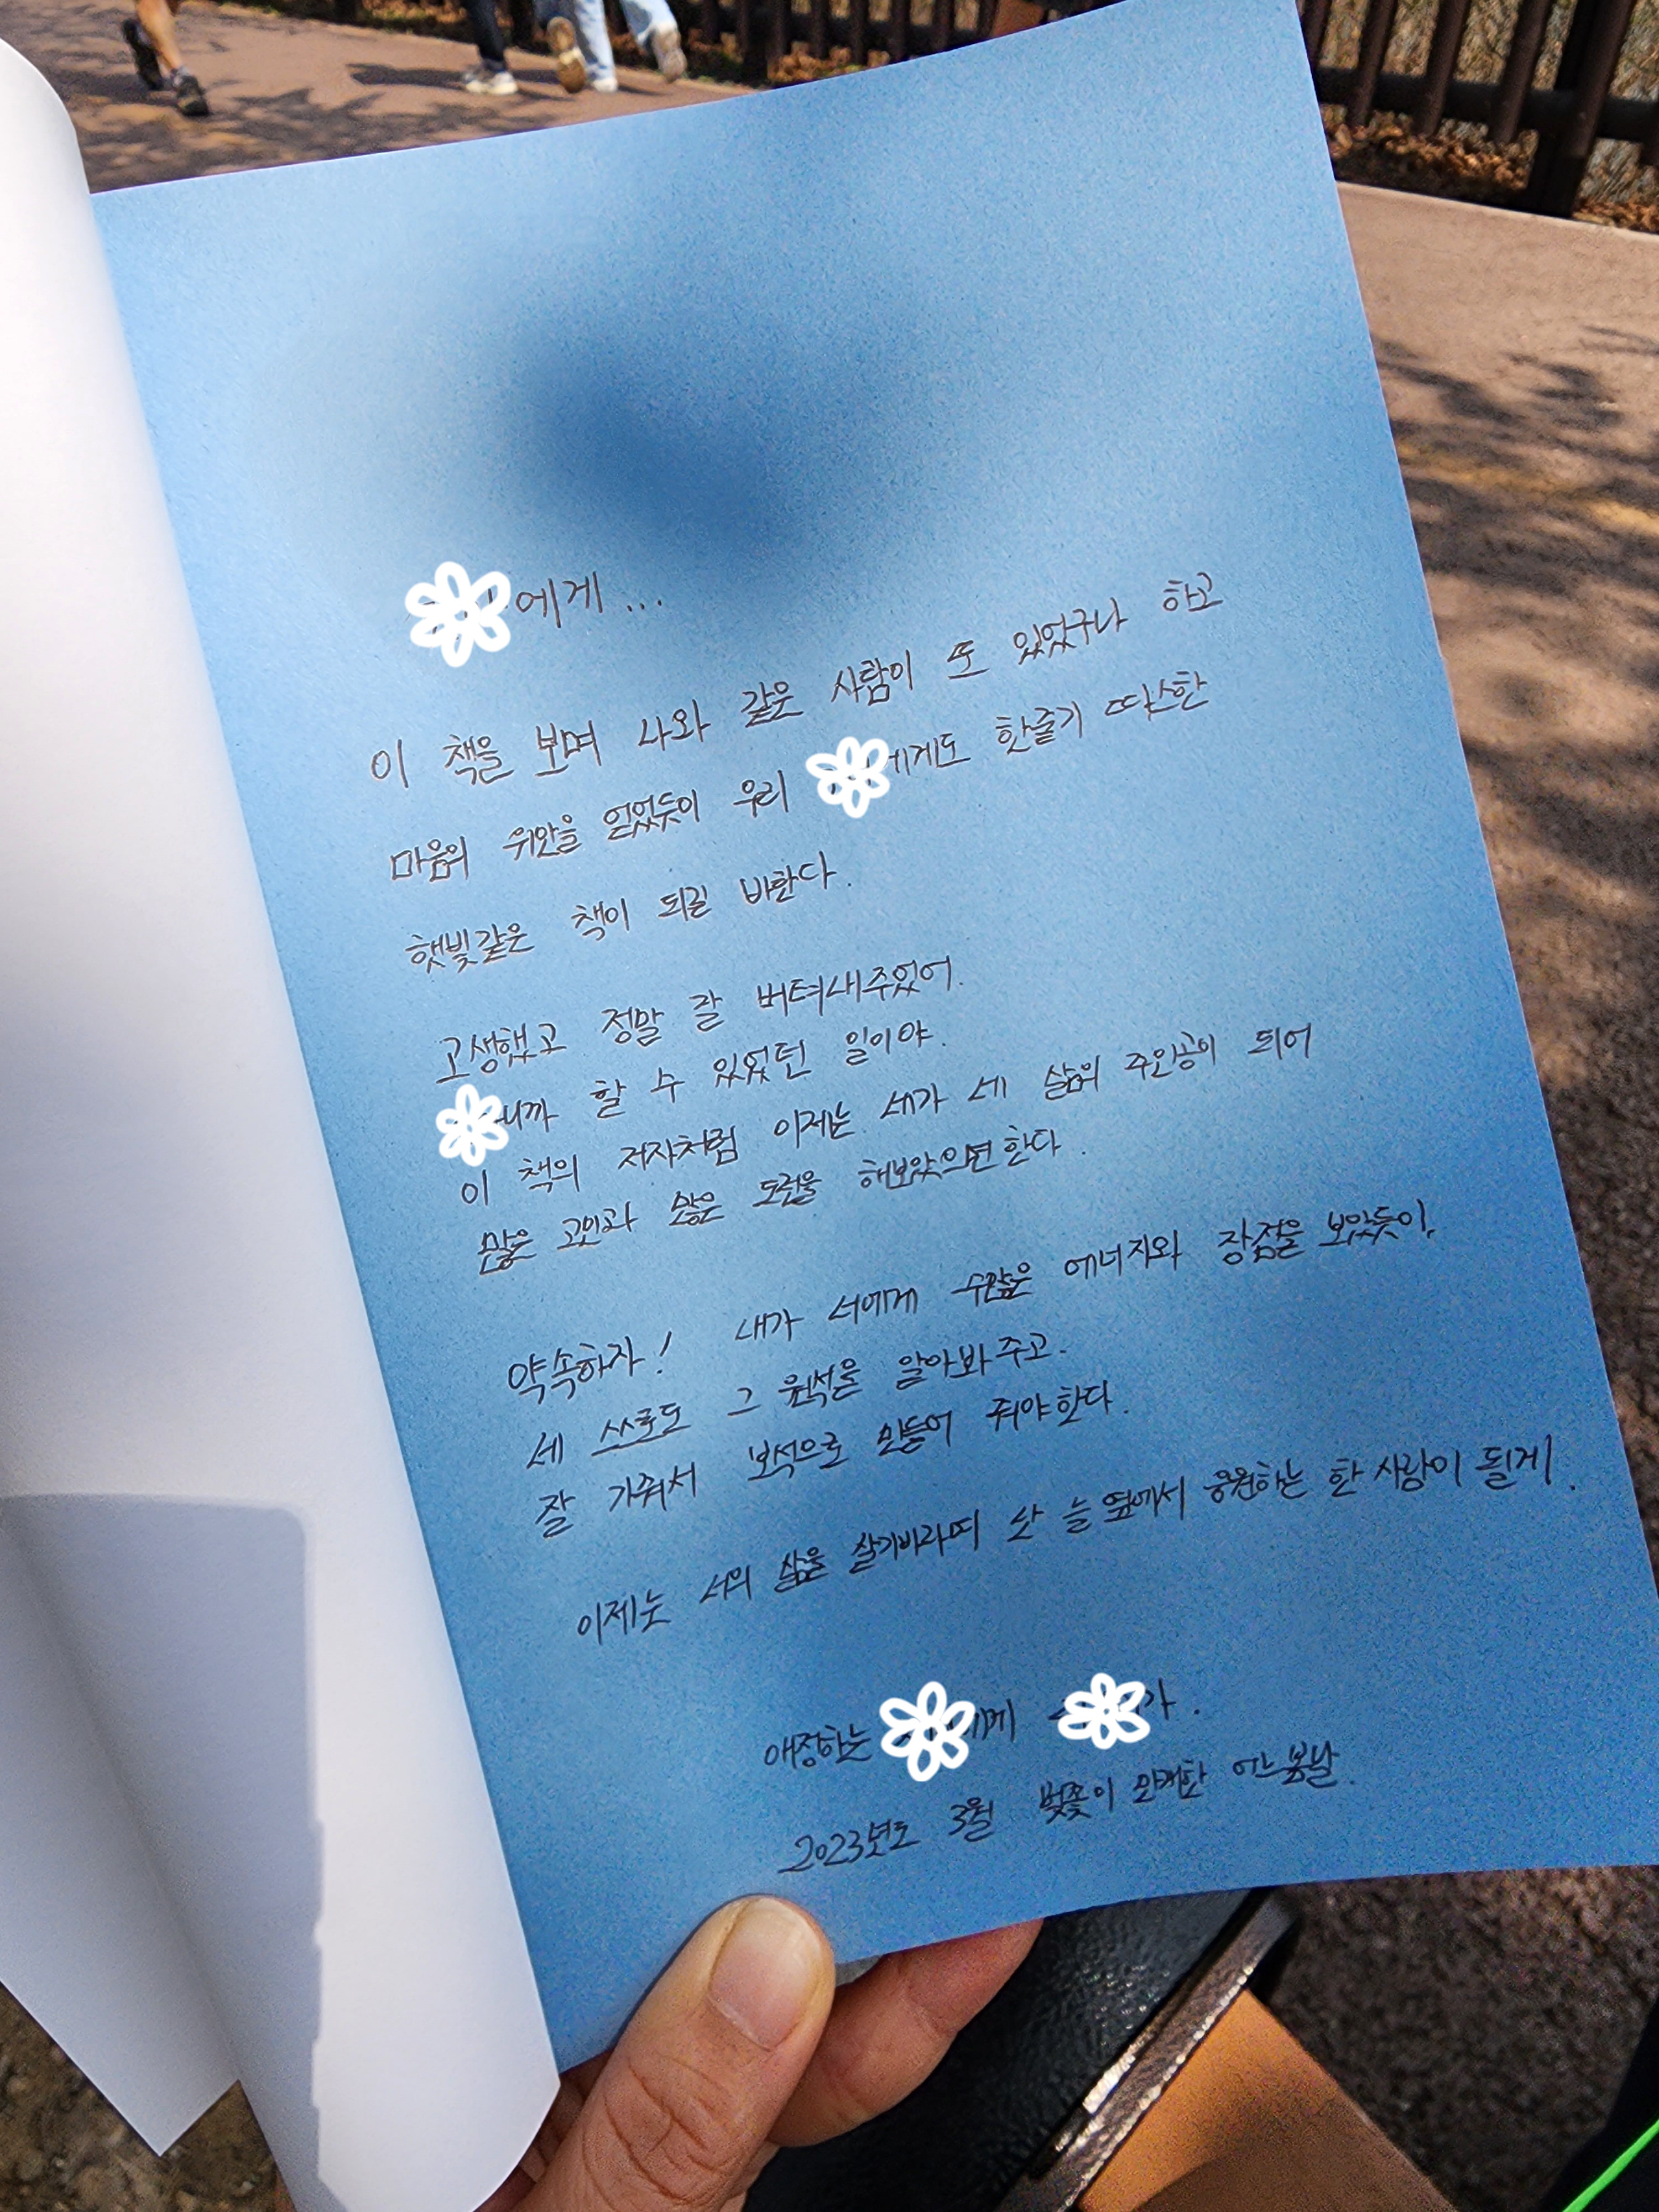 에게...
이 책을 보며 나와 같은 사람이 또 있었구나 하고
마음의 위안을 얻었듯이 우리 에게도 한줄기 따스한
햇빛같은 책이 되길 바란다.
고생했고 정말 잘 버텨내주었어.
니까 할 수 있었던 일이야.
이 책의 저자처럼 이제는 네가 네 삶의 주인공이 되어
많은 고민과 많은 도전을 해보았으면 한다.
약속하자! 내가 너에게 수많은 에너지와 장점을 보았듯이,
네 스스로도 그 원석을 알아봐 주고.
잘 가꿔서 보석으로 만들어 줘야 한다.
이제는 너의 삶을 살기바라며 난 늘 옆에서 응원하는 한 사람이 될게.
애정하는 에게 가.
2023년도 3월 벚꽃이 만개한 어느봄날.